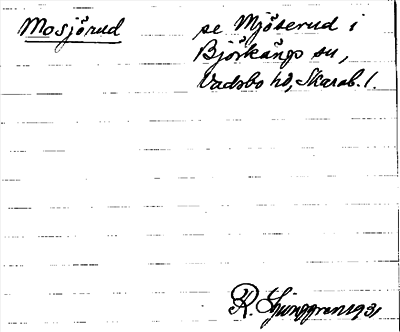 Mosjörud se Mjöserud i
Björkängs sn,
Vadsbo hd, Skarab. l.
R. Ljunggren 1931